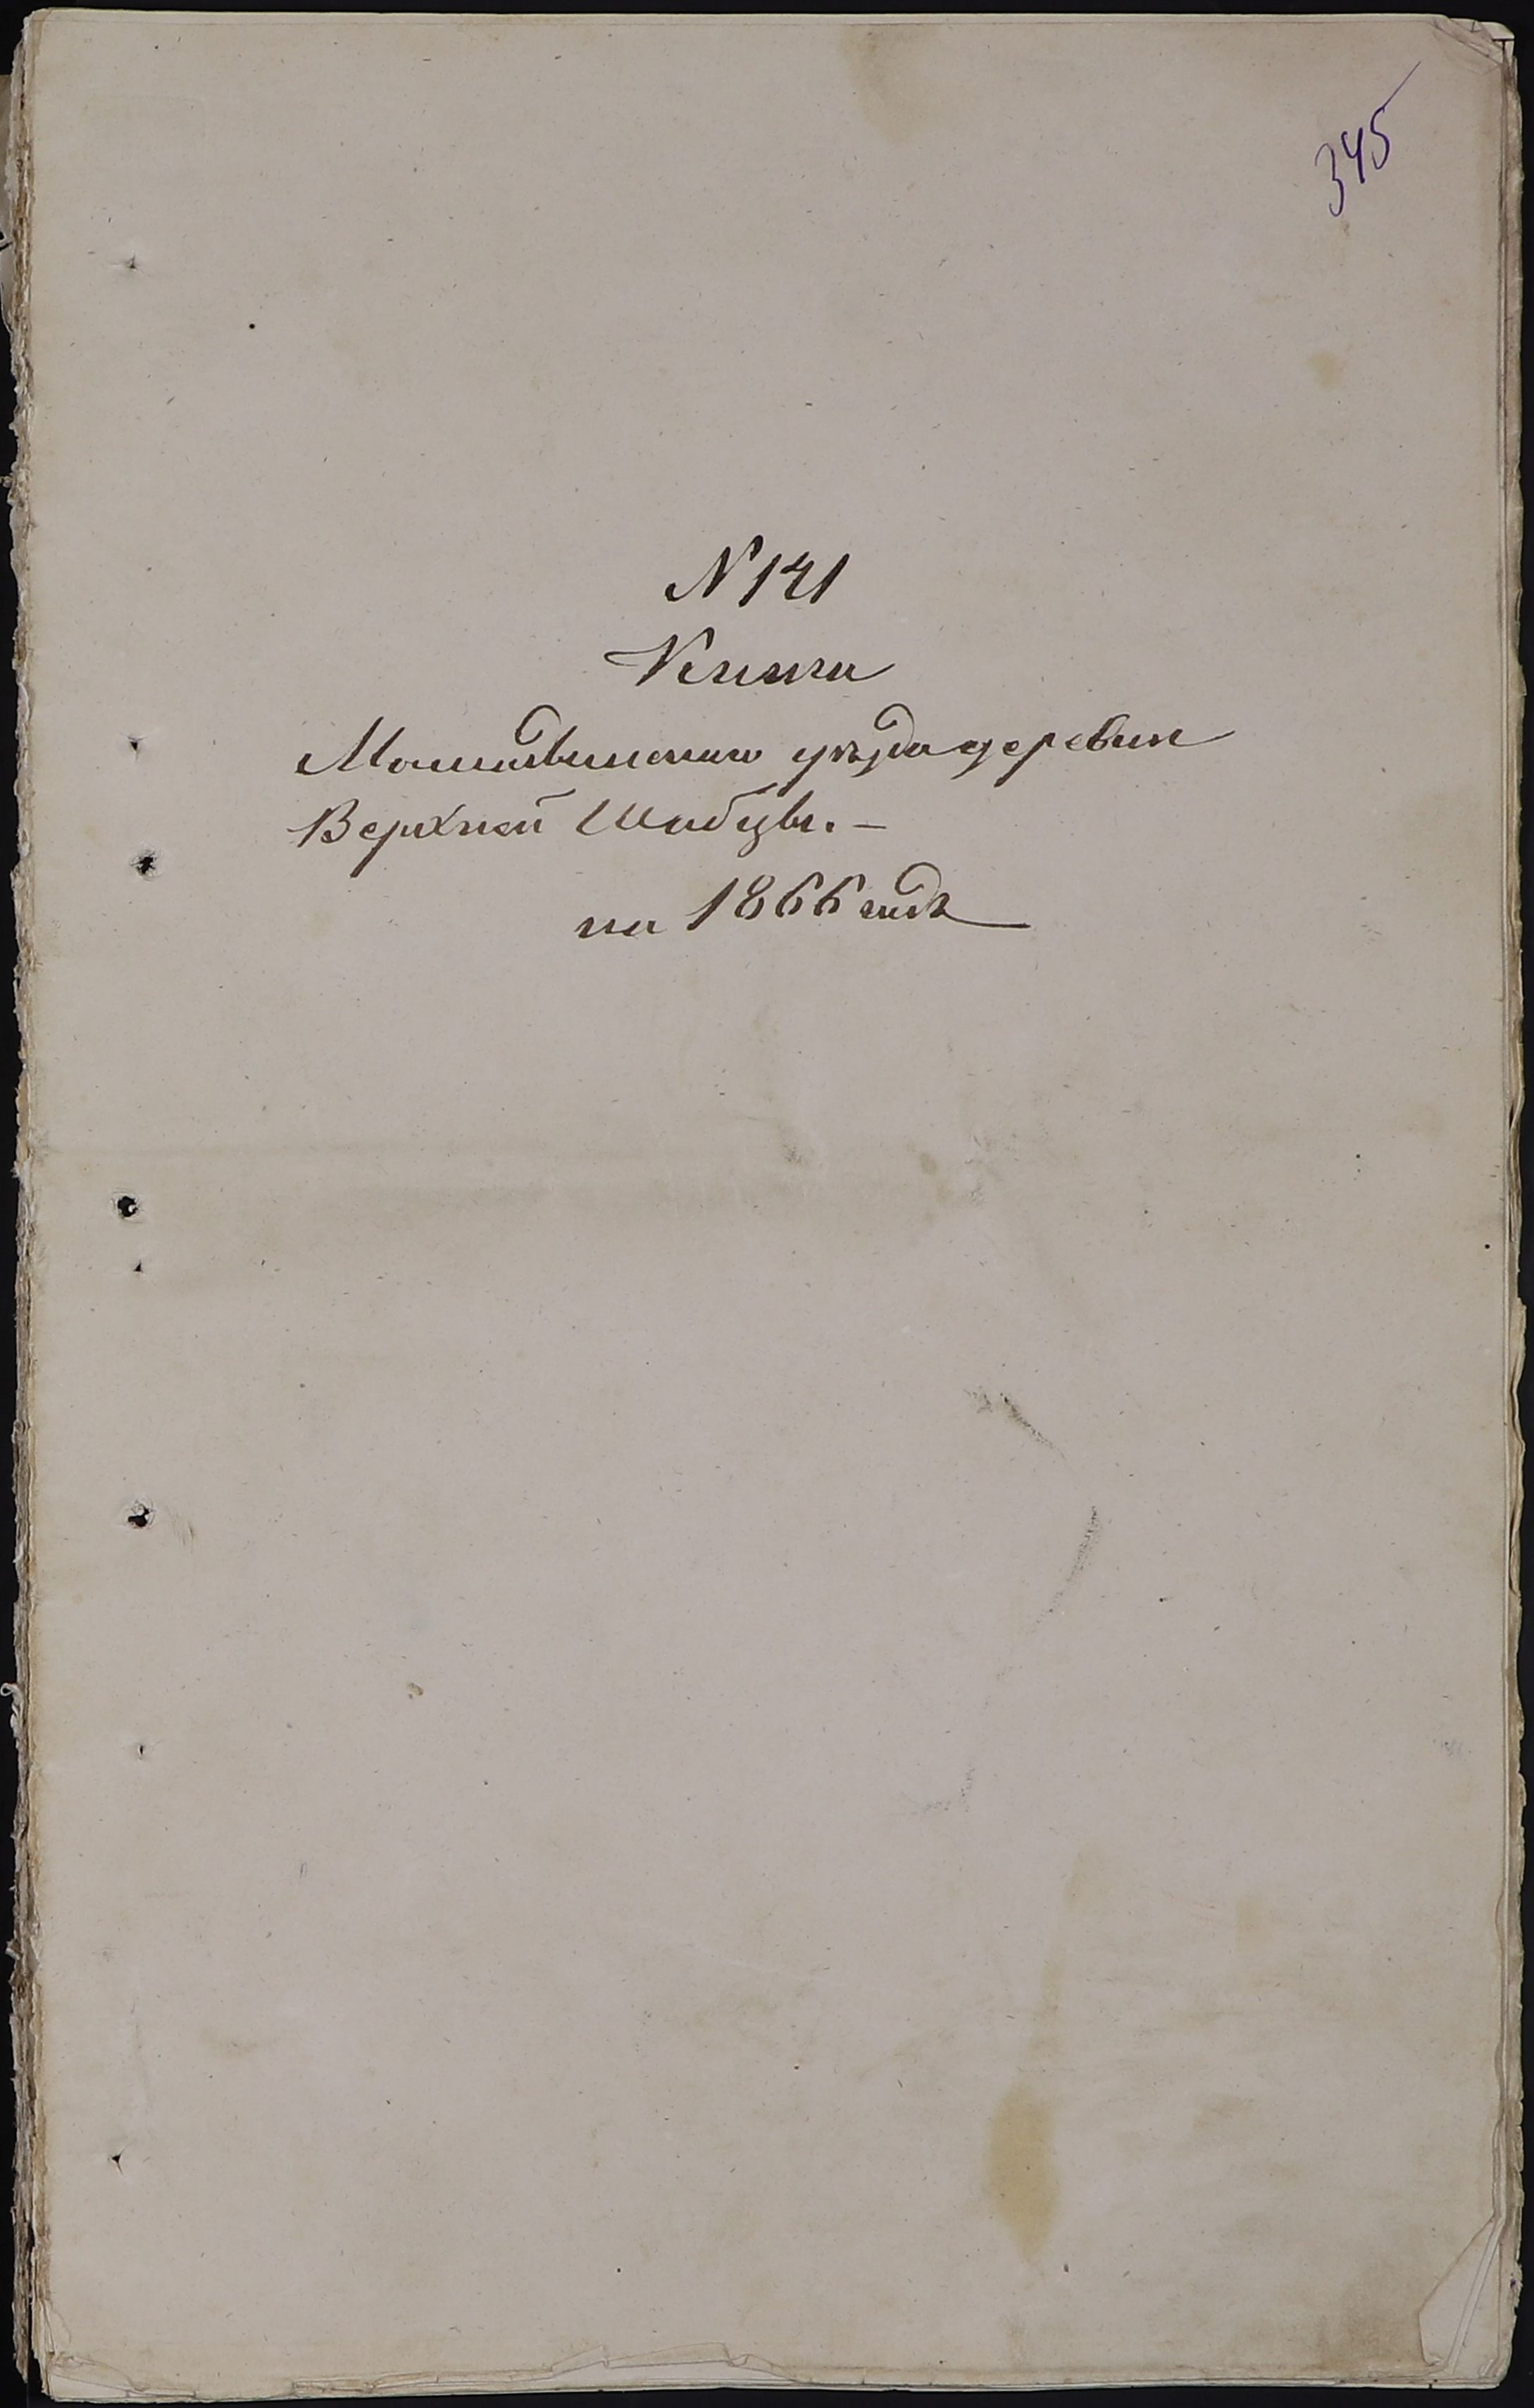 345
N 141
Книга
Мамадышскаго уѣзда деревни
Верхней Шабцы. –
на 1866 годъ